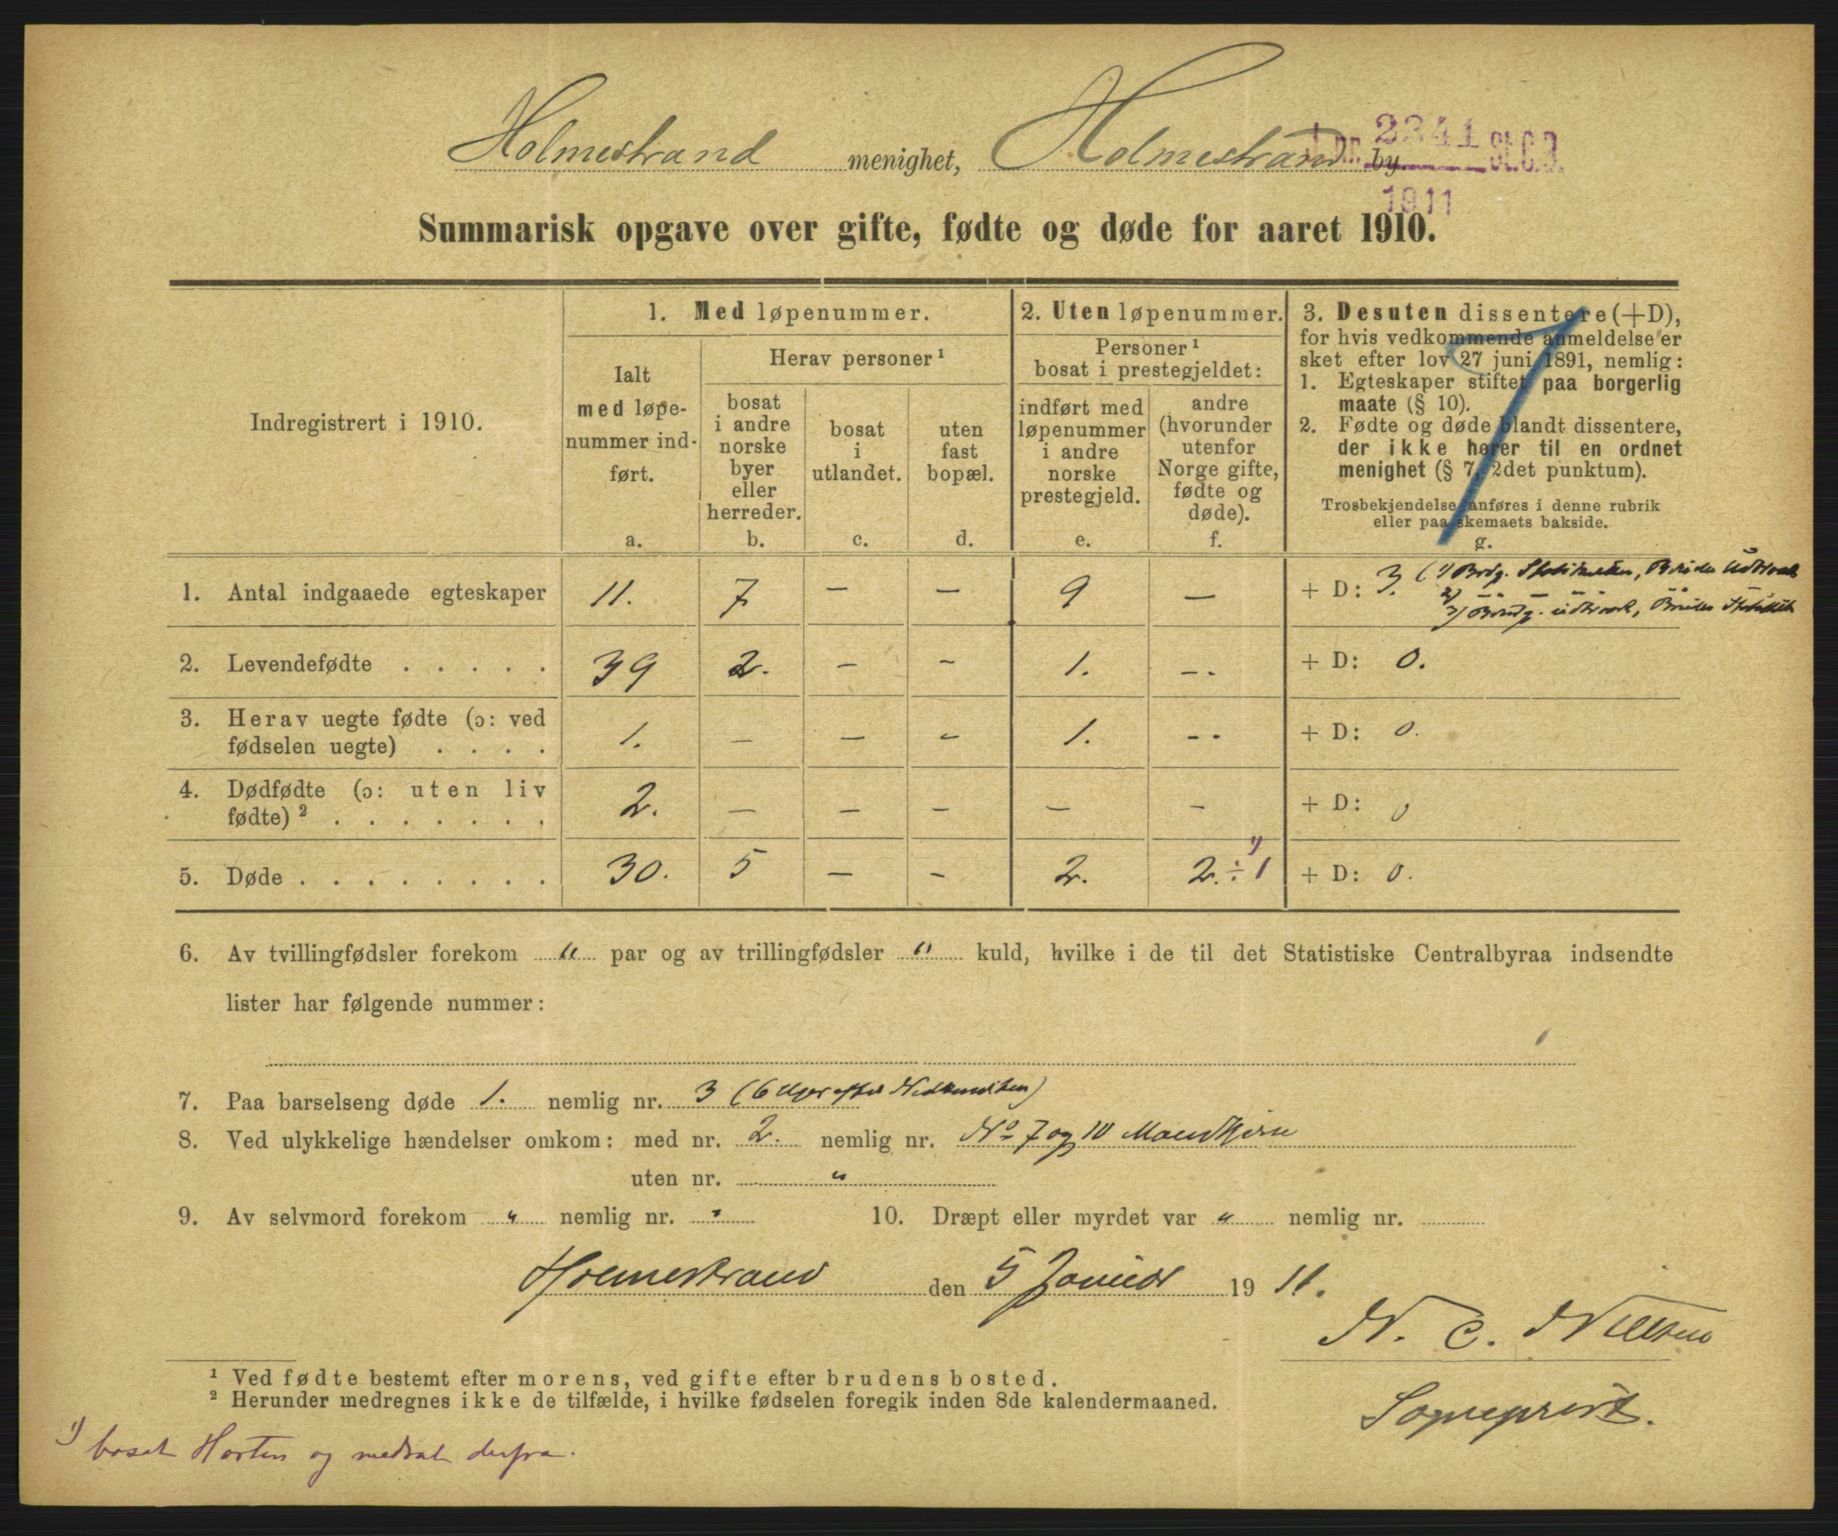 Holmestrand menighet, Holmestrand by.
J. nr. 2341 St.C.B.
1911
Summarisk opgave over gifte, fødte og døde for aaret 1910.
Indregistrert i 1910.
1. Med løpenummer.
Ialt
med løpe-
nummer ind-
ført.
a.
Herav personer ¹
bosat
i andre
norske
byer
eller
herreder.
b.
bosat
i
utlandet.
c.
uten
fast
bopæl.
d.
2. Uten løpenummer.
Personer ¹
bosat i prestegjeldet:
indført med
løpenummer
i andre
norske
prestegjeld.
e.
andre
(hvorunder
utenfor
Norge gifte,
fødte og
døde).
f.
3. Desuten dissentere (+D),
for hvis vedkommende anmeldelse er
sket efter lov 27 juni 1891, nemlig:
1. Egteskaper stiftet paa borgerlig
maate (§ 10).
2. Fødte og døde blandt dissentere,
der ikke hører til en ordnet
menighet (§ 7, 2det punktum).
Trosbekjendelse anføres i denne rubrik
eller paa skemaets bakside.
g.
1. Antal indgaaede egteskaper 11. 7 — — 9 — + D: 3. (1) Brdg. Statskirken, Bruden Udtraadt
2) — — — —
3) Brudg. udtraadt, Bruden Statsk.
2. Levendefødte . . . . . 39 2. — — 1. -- + D: 0.
3. Herav uegte fødte (ɔ: ved
fødselen uegte) . . . . 1. — — — 1. -- + D: 0.
4. Dødfødte (ɔ: uten liv
fødte) ² . . . . . . . 2. — — — — — + D: 0
5. Døde . . . . . . . . 30. 5 — — 2. 2. ÷ 1 ¹) + D: 0.
6. Av tvillingfødsler forekom " par og av trillingfødsler " kuld, hvilke i de til det Statistiske Centralbyraa indsendte
lister har følgende nummer:
7. Paa barselseng døde 1. nemlig nr. 3 (6 Uger efter Nedkomsten)
8. Ved ulykkelige hændelser omkom: med nr. 2. nemlig nr. No 7 og 10 Mandkjøn
uten nr. "
9. Av selvmord forekom " nemlig nr. " 10. Dræpt eller myrdet var " nemlig nr.
Holmestrand den 5 Januar 1911.
N. C. Nielsen
Sogneprest.
¹ Ved fødte bestemt efter morens, ved gifte efter brudens bosted.
² Herunder medregnes ikke de tilfælde, i hvilke fødselen foregik inden 8de kalendermaaned.
¹) bosat Horten og medtat derfra.